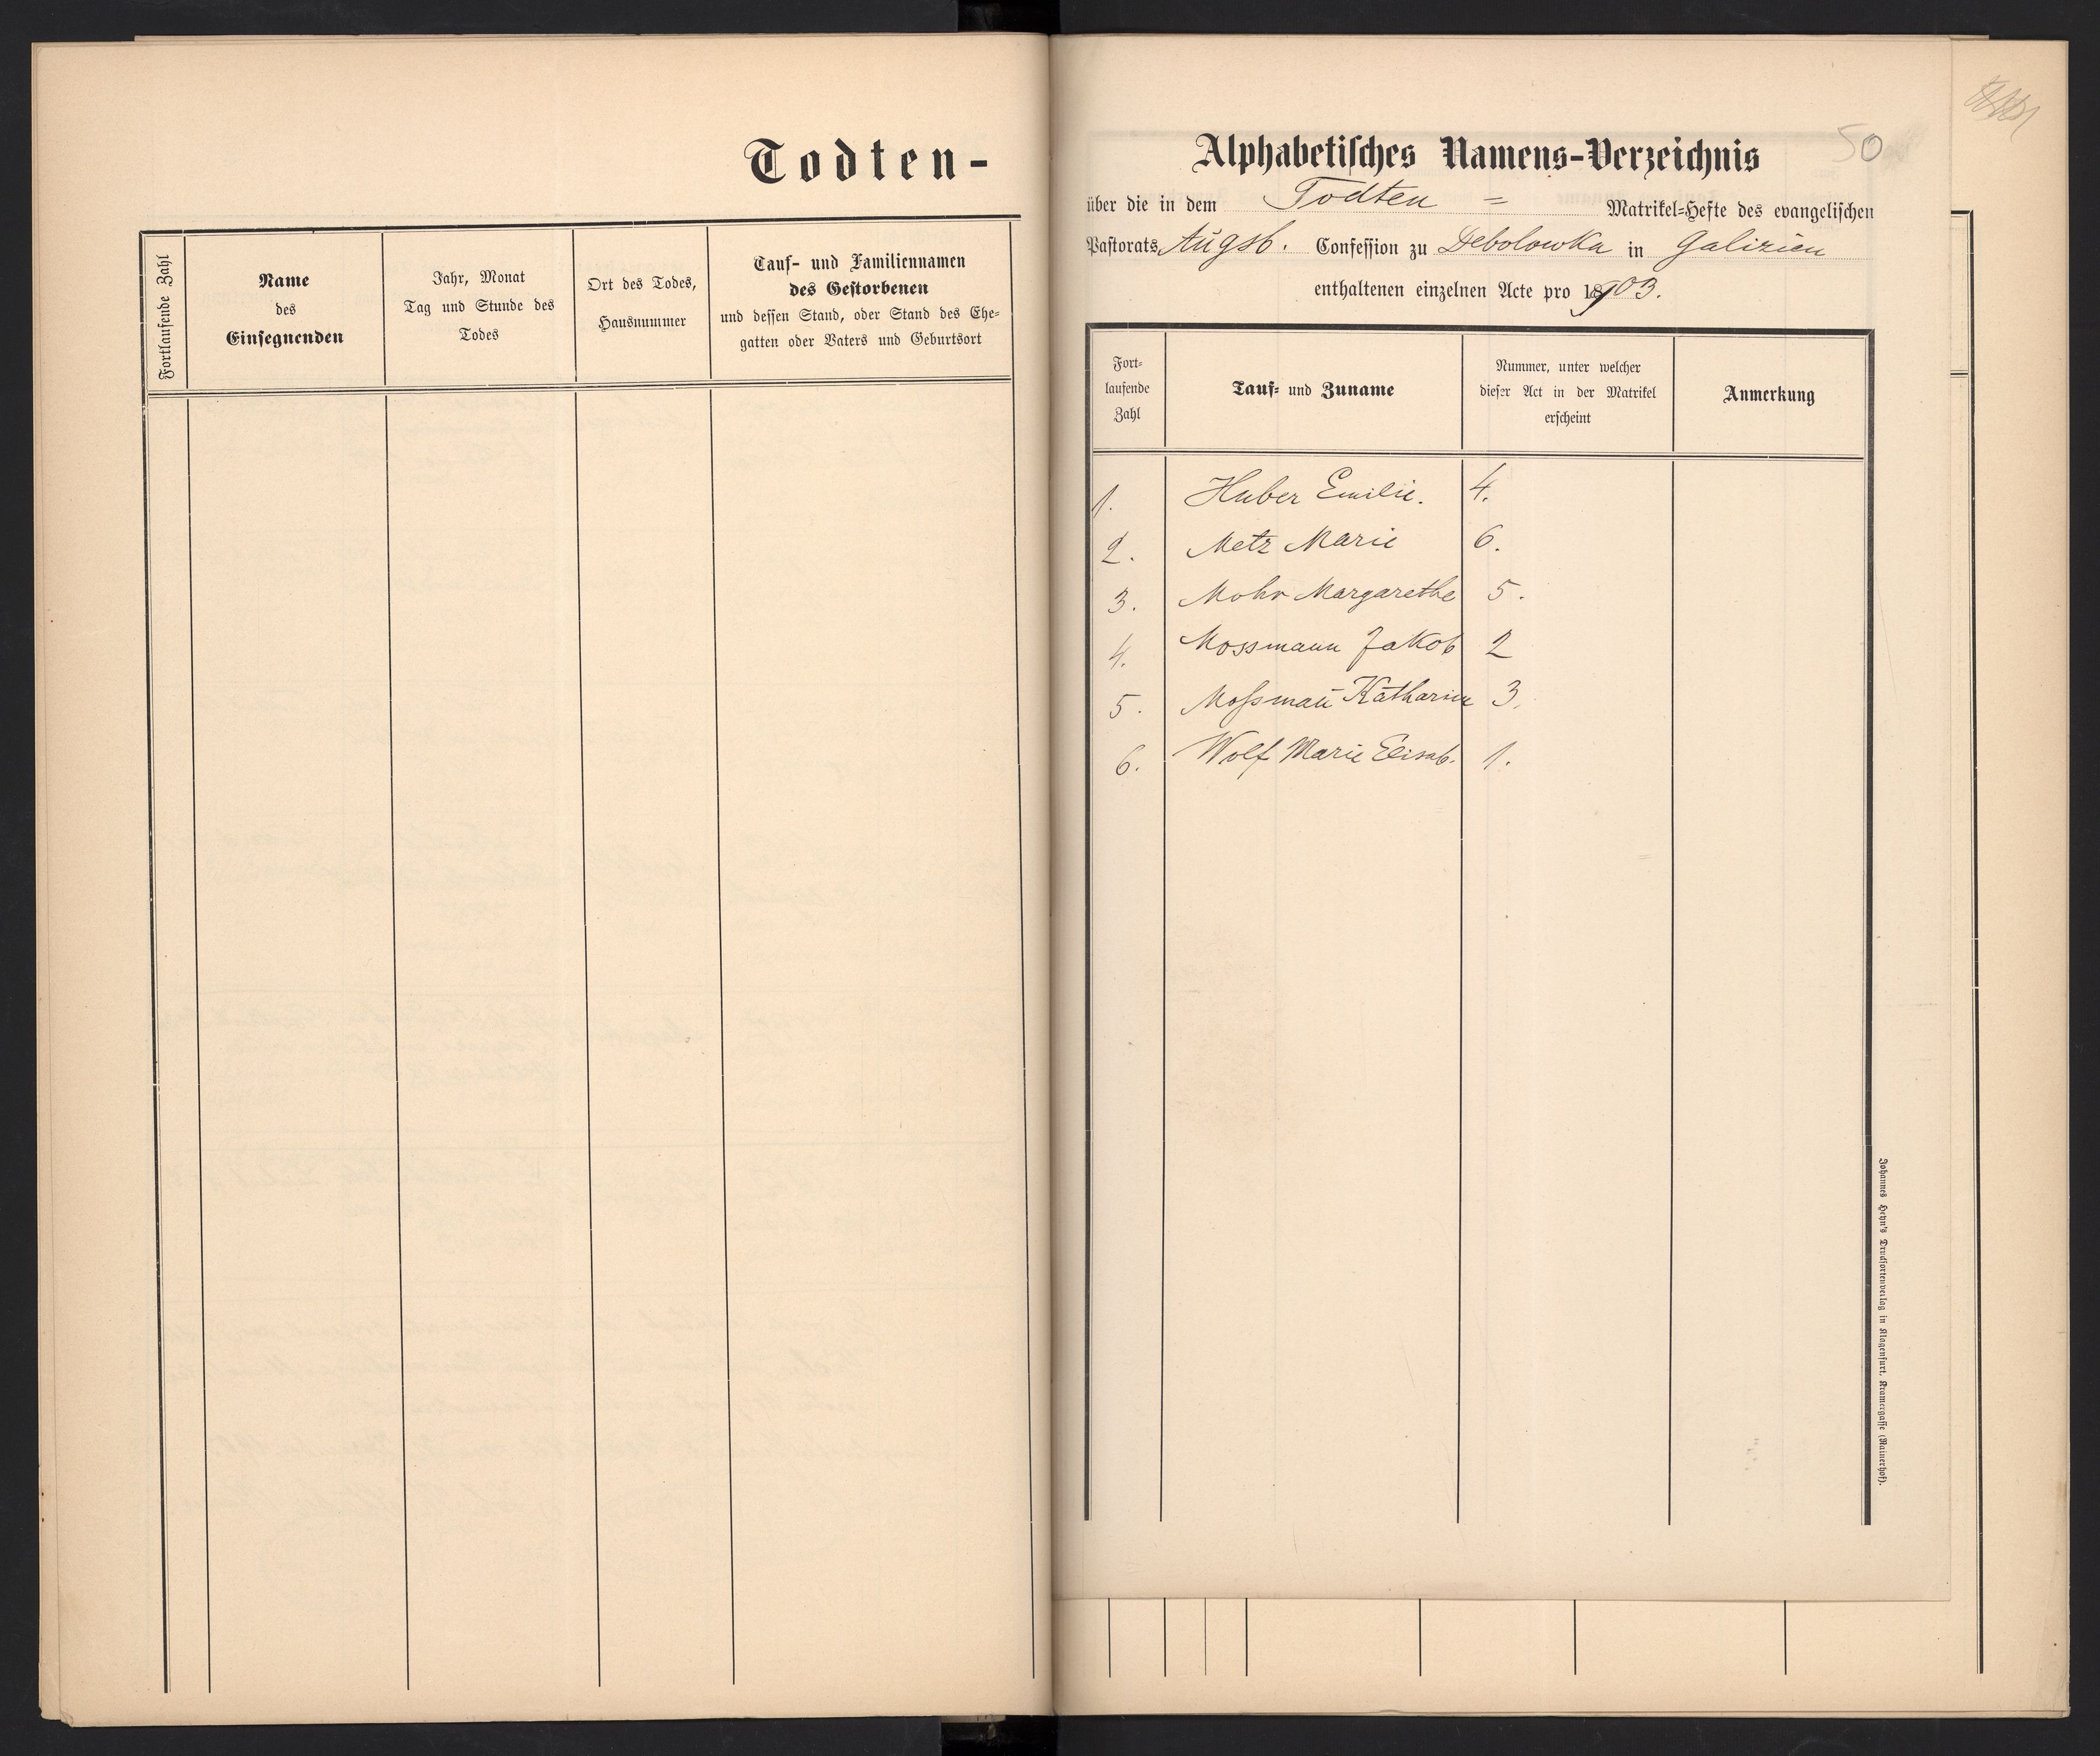 Todten-
Fortlaufende Zahl
Name
des
Einsegnenden
Jahr, Monat
Tag und Stunde des
Todes
Ort des Todes,
Hausnummer
Tauf- und Familiennamen
des Gestorbenen
und dessen Stand, oder Stand des Ehe-
gatten oder Vaters und Geburtsort
50
Alphabetisches Namens-Verzeichnis
über die in dem Todten = Matrikel-Hefte des evangelischen
Pastorats Augsb. Confession zu Debolowka in Galizien
enthaltenen einzelnen Acte pro 1903.
Fort-
laufende
Zahl
Tauf- und Zuname
Nummer, unter welcher
dieser Act in der Matrikel
erscheint
Anmerkung
1. Huber Emilie. 4.
2. Metz Marie 6.
3. Mohr Margarethe 5.
4. Mossmann Jakob 2
5. Moßmañ Katharina 3.
6. Wolf Marie Elisab. 1.
Johannes Heyn's Drucksortenverlag in Klagenfurt, Kramergasse (Rainerhof).